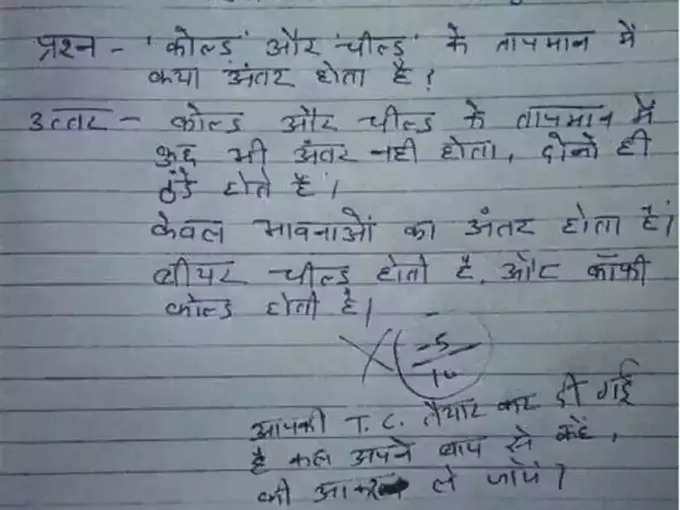 प्रश्न - 'कोल्ड' और 'चील्ड' के तापमान में
क्या अंतर होता है?
उत्तर - कोल्ड और चील्ड के तापमान में
कुछ भी अंतर नही होता, दोनो ही
ठंडे होते है।
केवल भावनाओं का अंतर होता है।
बीयर चील्ड होती है, और कॉफी
कोल्ड होती है।
-5
10
आपकी T.C. तैयार कर दी गई
है कल अपने बाप से कहें,
की आकर ले जायें।